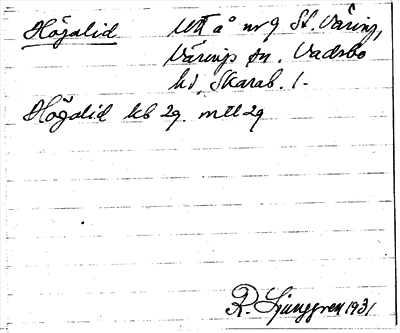 Högalid Utt å nr 9 St. Väring,
Värings sn. Vadsbo
hd, Skarab. l.
Högalid kb 29. mtl 29
R. Ljunggren 1931